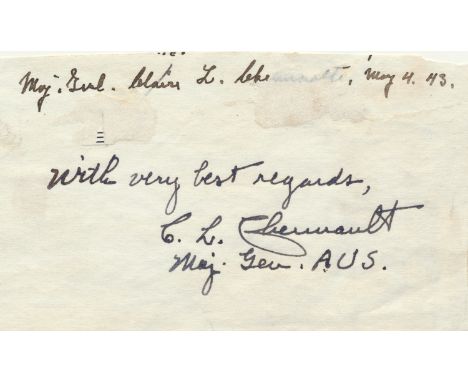 Maj. Genl. Claire L. Chennault, May 4. 43.
With very best regards,
C. L. Chennault
Maj. Gen. A.U.S.